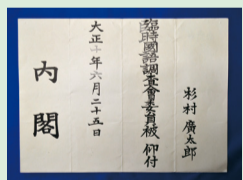 杉村廣太郎
臨時國語調査會委員被仰付
大正十年六月二十五日
内閣